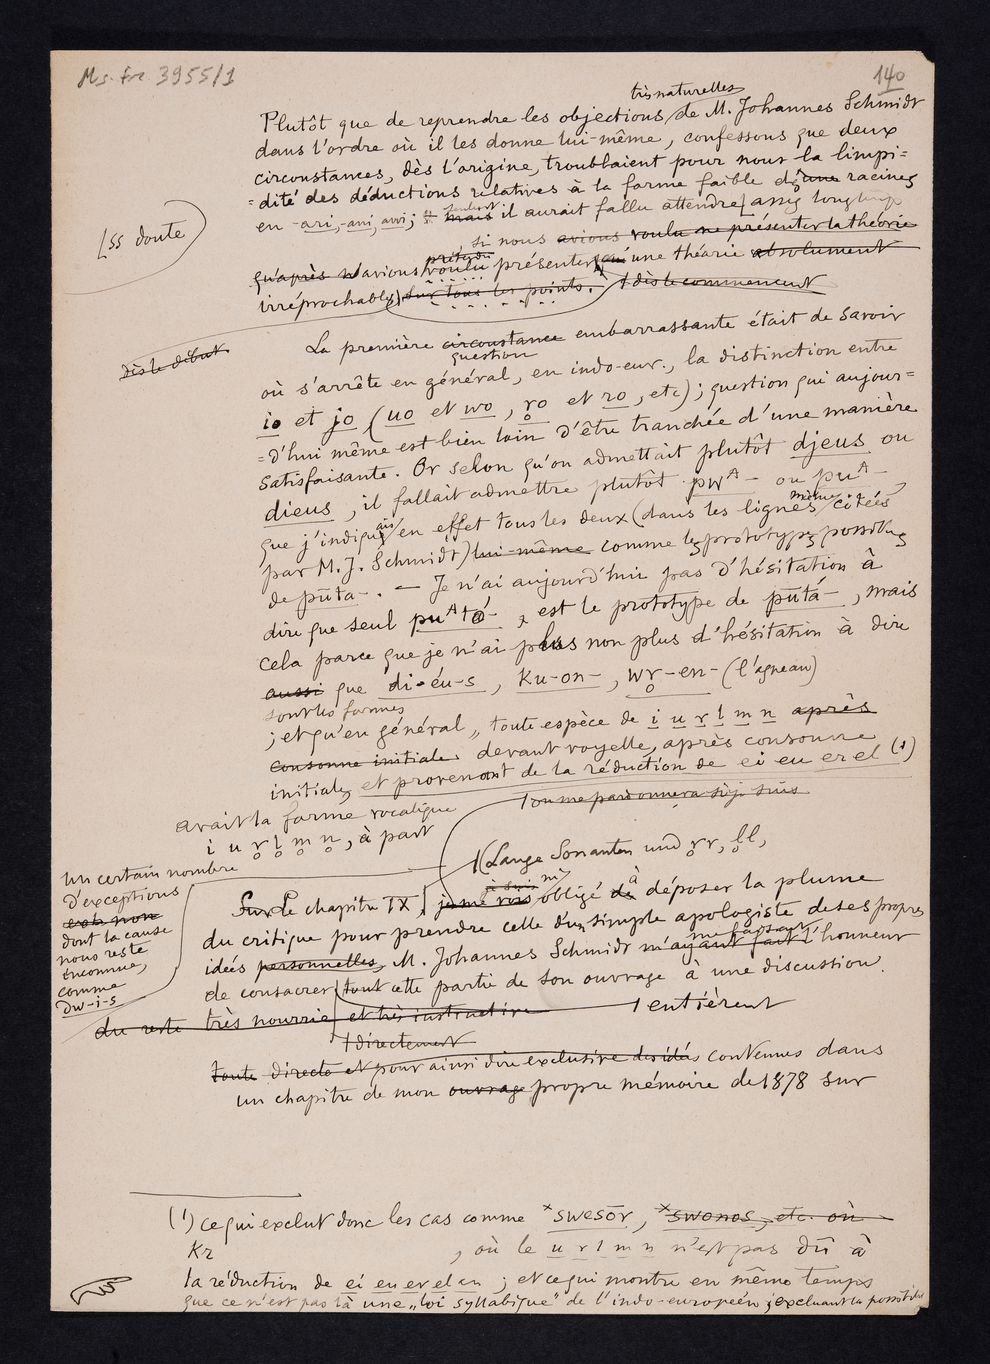 Ms. fr. 3955/1
140
très naturelles
Plutôt que de reprendre les objections de M. Johannes Schmidt
dans l'ordre où il les donne lui-même, confessons que deux
circonstances, dès l'origine, troublaient pour nous la limpi=
=dité des déductions relatives à la forme faible d'une racines
en -ari, -ani, awi; mais il aurait fallu attendre assez longtemps
sans doute
si nous avions voulu ne présenter la théorie
prétendu
qu'après n'avions voulu présenter une théorie absolument
irréprochable sur tous les points. dès le commencement
dès le début
La première circonstance embarrassante était de savoir
question
où s'arrête en général, en indo-eur., la distinction entre
io et jo (uo et wo, r̥o et ro, etc); question qui aujour=
=d'hui même est bien loin d'être tranchée d'une manière
satisfaisante. Or selon qu'on admettait plutôt djeus ou
dieus, il fallait admettre plutôt pwᴬ- ou puᴬ-,
même
que j'indiquais en effet tous les deux (dans les lignes citées
par M. J. Schmidt) lui-même comme les prototypes possibles
de pūta-. — Je n'ai aujourd'hui pas d'hésitation à
dire que seul puᴬtó- est le prototype de pūtá-, mais
cela parce que je n'ai plus non plus d'hésitation à dire
aussi que di-éu-s, ku-on-, wr̥-en- (l'agneau)
sont les formes
; et qu'en général, toute espèce de i u r l m n après
consonne initiale devant voyelle, après consonne
initiale, et provenant de la réduction de ei eu er el (1)
avait la forme vocalique
i u r̥ l̥ m̥ n̥, à part
un certain nombre
d'exceptions
dont la cause
nous reste
inconnue,
comme
dw-i-s
on me pardonnera si je suis
(Lange Sonanten und r̥r, l̥l,
je suis
Sur le chapitre IX, je me vois obligé de à déposer la plume
du critique pour prendre celle d'un simple apologiste de ses propres
me faisant
idées personnelles, M. Johannes Schmidt m'ayant fait l'honneur
de consacrer tout cette partie de son ouvrage à une discussion
du reste très nourrie et très instructive entièrent
directement
toute directe et pour ainsi dire exclusive des idées contenues dans
un chapitre de mon ouvrage propre mémoire de 1878 sur
(1) ce qui exclut donc les cas comme *swesōr, *swenos, etc. où
kz , où le u r l m n n'est pas dû à
la réduction de ei eu er el en; et ce qui montre en même temps
que ce n'est pas là une "loi syllabique" de l'indo-européen; excluant la possibilité